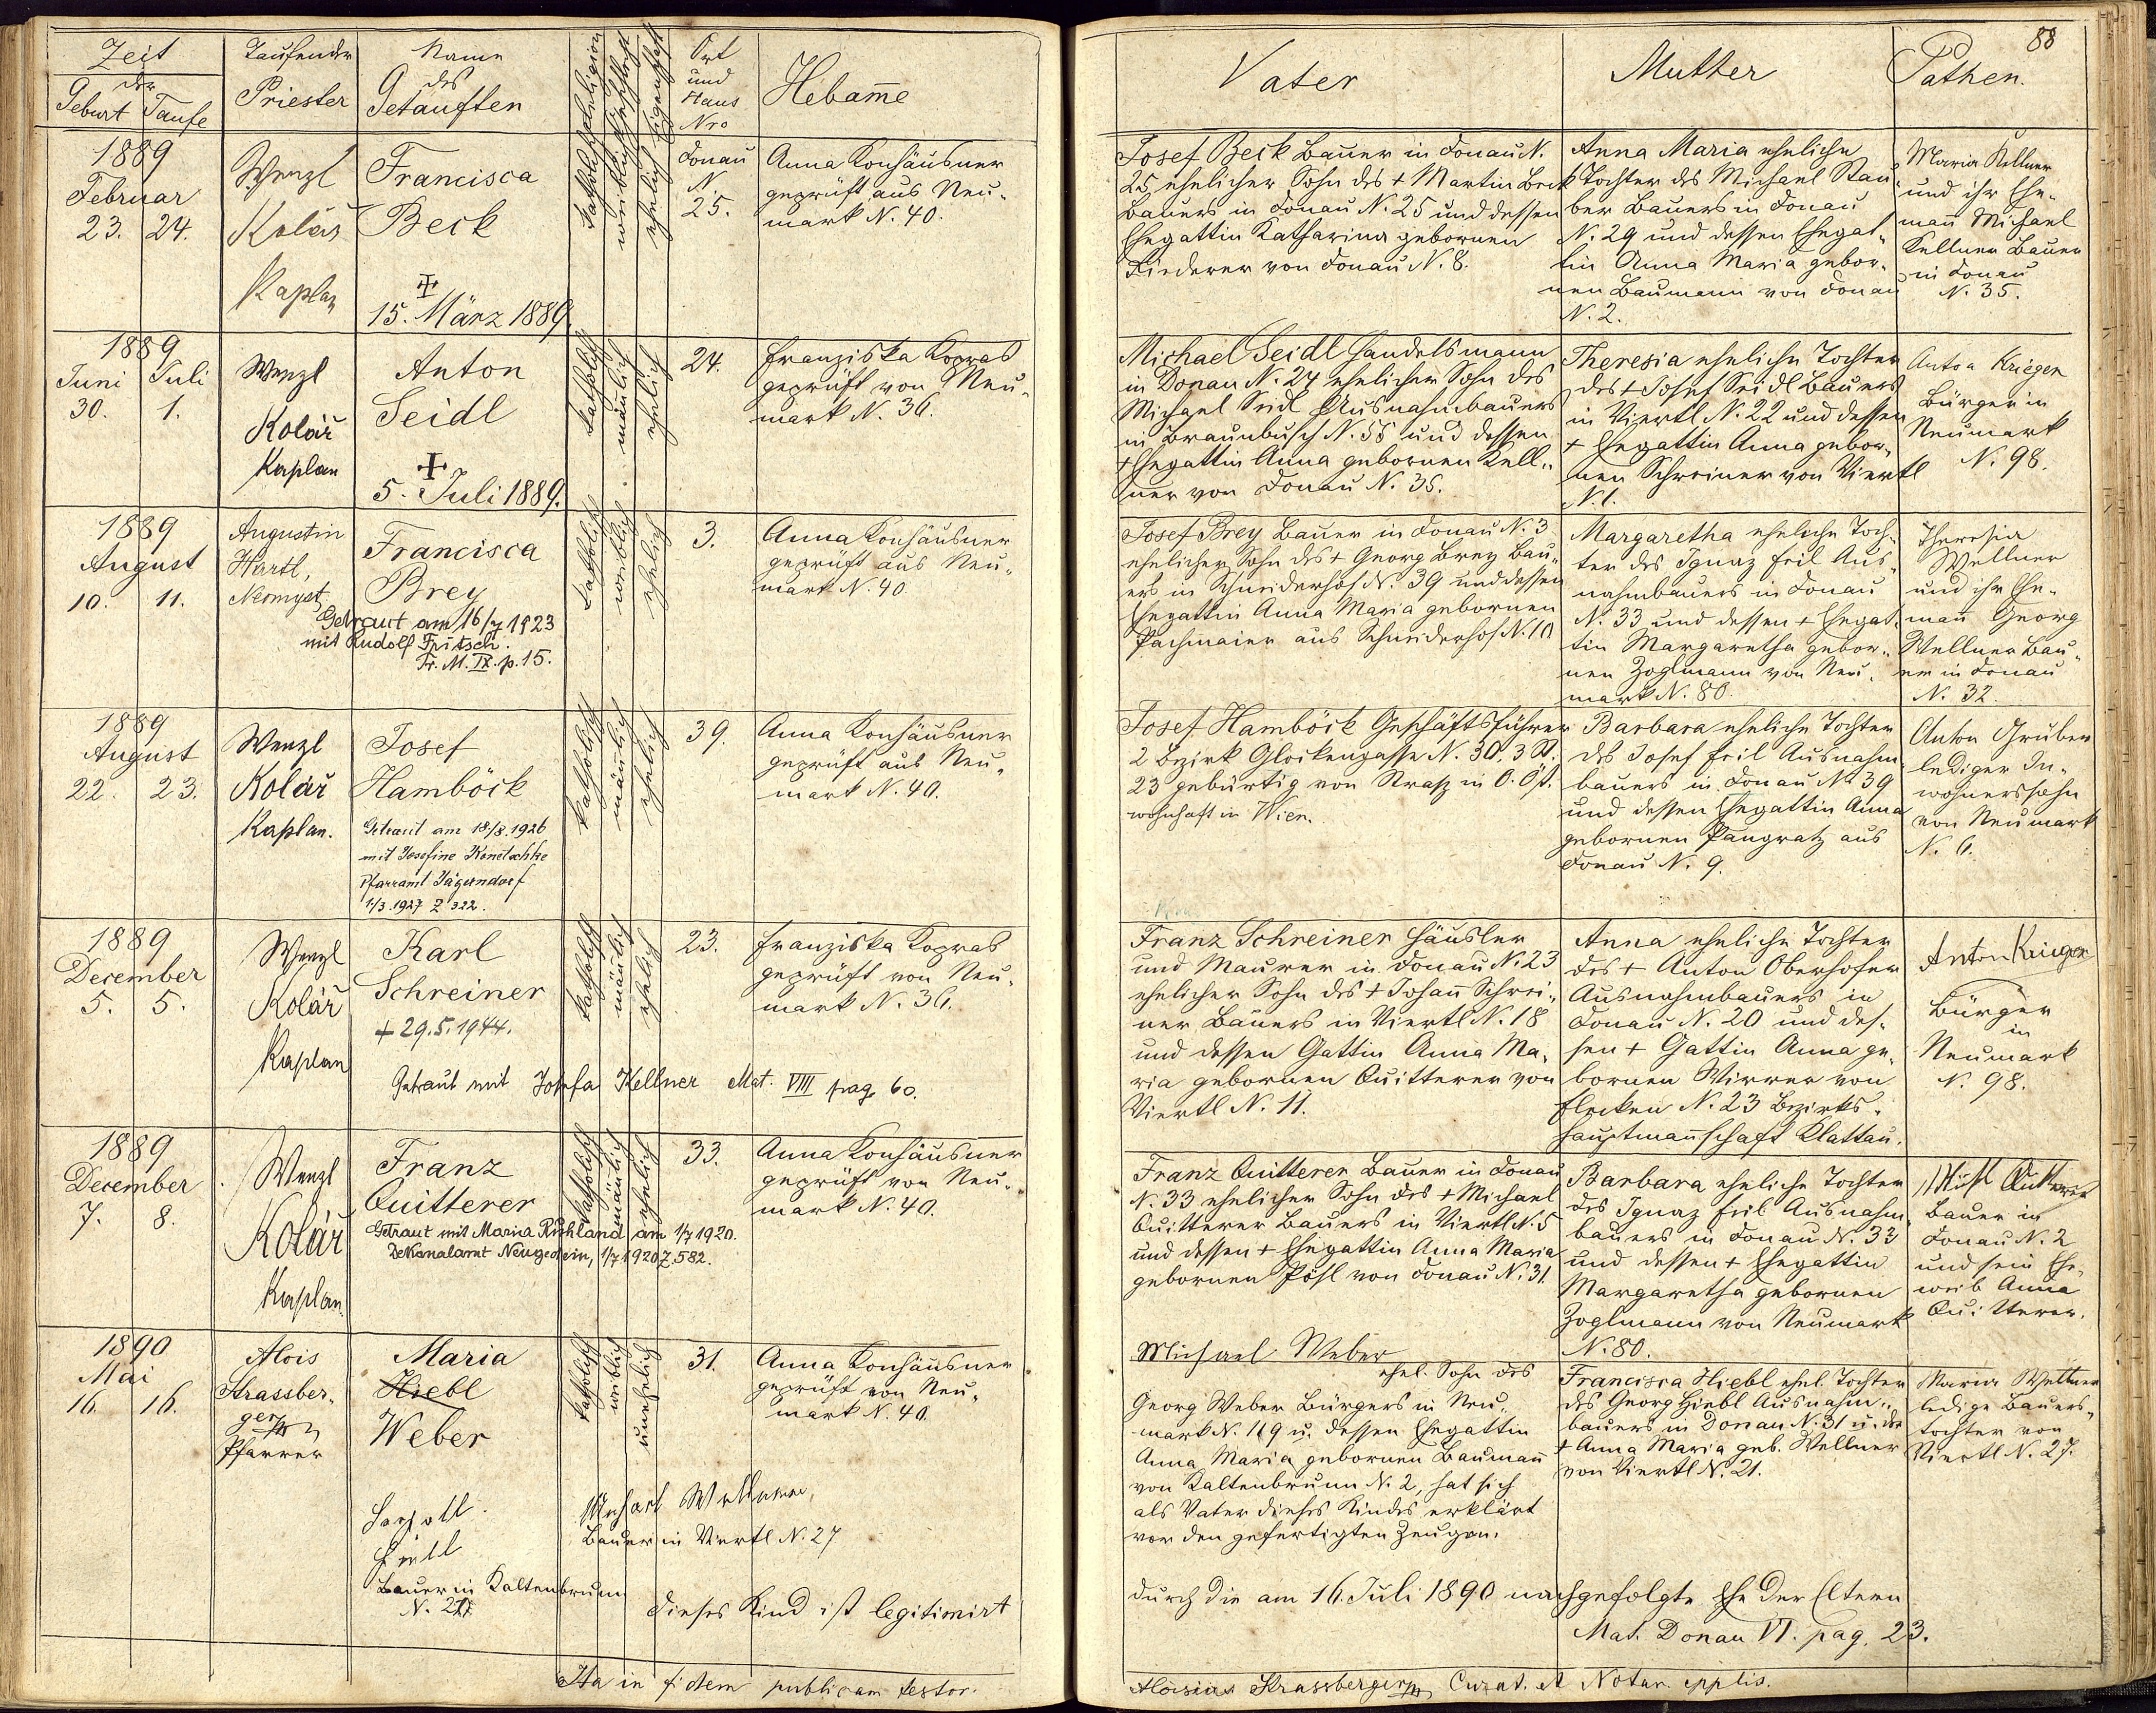 Zeit
der
Geburt Taufe
Taufender
Priester
Name
des
Getauften
Katholisch Religion
weiblich Geschlecht
ehelich Eigenschaft
Ort
und
Haus
Nro
Hebam̄e
1889
Februar
23. 24.
Wenzl
Kolář
Kaplan
Francisca
Beck
+
15. März 1889.
Donau
N.
25.
Anna Konhäusner
geprüft aus Neu„
mark N. 40.
1889
Juni Juli
30. 1.
Wenzl
Kolář
Kaplan
Anton
Seidl
+
5. Juli 1889.
katholisch
mänlich
ehelich
24.
Franziska Kopras
geprüft von Neu„
mark N. 36.
1889
August
10. 11.
Augustin
Hartl,
Neomyst.
Francisca
Brey
Getraut am 16/7 1923
mit Rudolf Fritsch.
Tr. M. IX. p. 15.
katholisch
weiblich
ehelich
3.
Anna Konhäusner
geprüft aus Neu„
mark N. 40
1889
August
22. 23.
Wenzl
Kolář
Kaplan.
Josef
Hamböck
Getraut am 18/8. 1926
mit Josefine Konetschke
Pfarramt Jägerndorf
1/3. 1927 Z 322.
katholisch
mänlich
ehelich
39.
Anna Konhäusner
geprüft aus Neu„
mark N. 40.
1889
December
5. 5.
Wenzl
Kolář
Kaplan
Karl
Schreiner
+ 29.5.1944.
Getraut mit Josefa Kellner Mat. VIII pag. 60.
katholisch
mänlich
ehelich
23.
Franziska Kopras
geprüft von Neu„
mark N. 36.
1889
December
7. 8.
Wenzl
Kolář
Kaplan.
Franz
Quitterer
Getraut mit Maria Ruhland am 1/7 1920.
Dekanalamt Neugedein, 1/7 1920 Z. 582.
katholisch
mänlich
ehelich
33.
Anna Konhäusner
geprüft von Neu„
mark N. 40.
1890
Mai
16. 16.
Alois
Strassber„
ger
Pfarrer
Maria
Hiebl
Weber
katholisch
weiblich
unehelich
31.
Anna Konhäusner
geprüft von Neu„
mark N. 40.
Bauer in Kaltenbrunn
Michael Wellner,
Bauer in Viertl N. 27
Dieses Kind ist legitimirt
Ita in fidem publicam testor.
88
Vater
Mutter
Pathen.
Josef Beck Bauer in Donau N.
25 ehelicher Sohn des + Martin Beck
Bauers in Donau N. 25 und dessen
Ehegattin Katharina gebornen
Fiederer von Donau N. 8.
Anna Maria eheliche
Tochter des Michael Stau„
ber Bauers in Donau
N. 29 und dessen Ehegat„
tin Anna Maria gebor„
nen Baumann von Donau
N. 2.
Maria Kellner
und ihr Ehe„
man̄ Michael
Kellner Bauer
in Donau
N. 35.
Michael Seidl Handelsmann
in Donau N. 24 ehelicher Sohn des
Michael Seidl Ausnahmbauers
in Braunbusch N. 58 und dessen
+ Ehegattin Anna gebornen Kell„
ner von Donau N. 35.
Theresia eheliche Tochter
des + Josef Seidl Bauers
in Viertl N. 22 und dessen
+ Ehegattin Anna gebor„
nen Schreiner von Viertl
N. 1.
Anton Krieger
Bürger in
Neumark
N. 98.
Josef Brey Bauer in Donau N. 3
ehelicher Sohn des + Georg Brey Bau„
ers in Schneiderhof N. 39 und dessen
Ehegattin Anna Maria gebornen
Pachmaier aus Schneiderhof N. 10
Margaretha eheliche Toch„
ter des Ignaz Feil Aus„
nahmbauers in Donau
N. 33 und dessen + Ehegat„
tin Margaretha gebor„
nen Zoglmann von Neu„
mark N. 80.
Theresia
Wellner
und ihr Ehe„
man̄ Georg
Wellner Bau„
er in Donau
N. 32.
Josef Hamböck Geschäftsführer
2 Bezirk Glockengasse N. 30, 3 St.
23 gebürtig von Strass in O. Öst.
wohnhaft in Wien.
Barbara eheliche Tochter
des Josef Feil Ausnahm„
bauers in Donau N 39
und dessen Ehegattin Anna
gebornen Pangratz aus
Donau N. 9.
Anton Gruber
lediger In„
wohnerssohn
von Neumark
N. 6.
Franz Schreiner Häusler
und Maurer in Donau N. 23
ehelicher Sohn des + Johan̄ Schrei„
ner Bauers in Viertl N. 18
und dessen Gattin Anna Ma„
ria gebornen Quitterer von
Viertl N. 11.
Anna eheliche Tochter
des + Anton Oberhofer
Ausnahmbauers in
Donau N. 20 und des„
sen + Gattin Anna ge„
bornen Wirrer von
Flecken N. 23 Bezirks„
hauptman̄schaft Klattau.
Anton Krieger
Bürger
in
Neumark
N. 98.
Franz Quitterer Bauer in Donau
N. 33 ehelicher Sohn des + Michael
Quitterer Bauers in Viertl N. 5
und dessen + Ehegattin Anna Maria
gebornen Pösl von Donau N. 31.
Barbara eheliche Tochter
des Ignaz Feil Ausnahm„
bauers in Donau N. 33
und dessen + Ehegattin
Margaretha gebornen
Zoglmann von Neumark
N. 80.
Quitterer
Bauer in
Donau N. 2
und sein Ehe„
weib Anna
Quitterer.
Michael Weber
ehel. Sohn des
Georg Weber Bürgers in Neu„
mark N. 119 u. dessen Ehegattin
Anna Maria gebornen Bauman̄
von Kaltenbrunn N. 2, hat sich
als Vater dieses Kindes erklärt
vor den gefertigten Zeugen.
Francisca Hiebl ehel. Tochter
des Georg Hiebl Ausnahm„
bauers in Donau N. 31 u. der
+ Anna Maria geb. Wellner
von Viertl N. 21.
Maria Wellner
ledige Bauers„
tochter von
Viertl N. 27.
durch die am 16. Juli 1890 nachgefolgte Ehe der Eltern
Mat. Donau VI. pag. 23.
Aloisius Strassberger Curat. et Notar. applis.